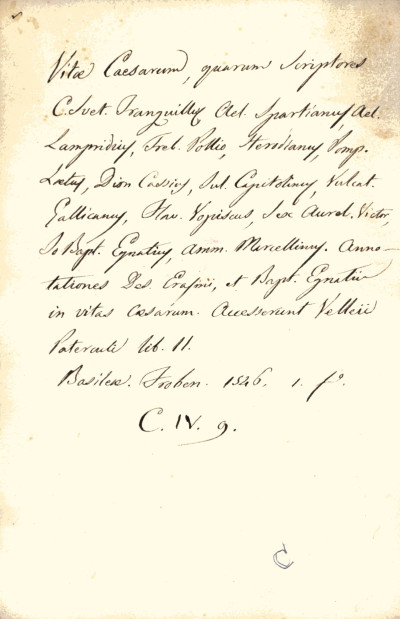 Vitæ Caesarum, quarum Scriptores
C. Svet. Tranquillus Ael. Spartianus, Ael.
Lampridius, Treb. Pollio, Herodianus, Pomp.
Lætus, Dion Cassius, Jul. Capitolinus, Vulcat.
Gallicanus, Flav. Vopiscus, Sex Aurel. Victor,
Jo Bapt. Egnatius, Amm. Marcellinus. Anno-
tationes Des. Erasmi, et Bapt. Egnatii
in vitas cæsarum. Accesserunt Velleii
Paterculi lib. II.
Basileæ. Froben. 1546. 1. fº.
C. IV. 9.
C